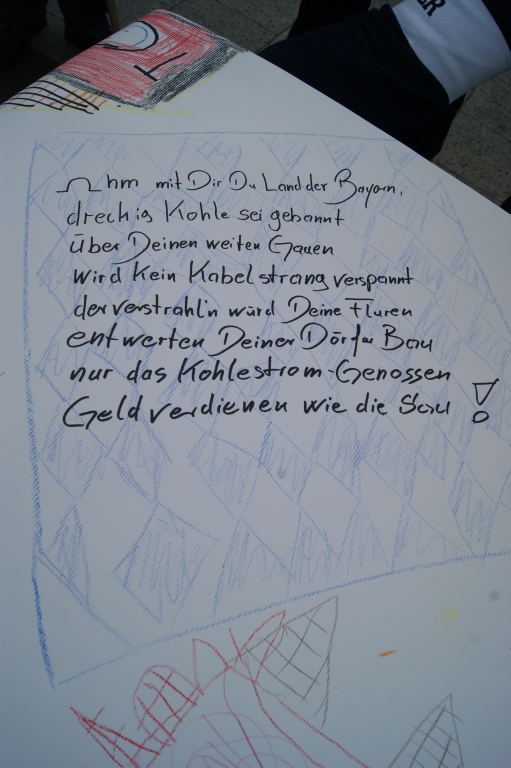 Ωhm mit Dir Du Land der Bayern,
drechig Kohle sei gebannt
über Deinen weiten Gauen
wird kein Kabelstrang verspannt
der verstrahl'n würd Deine Fluren
entwerten Deiner Dörfer Bau
nur das Kohlestrom-Genossen
Geld verdienen wie die Sau!